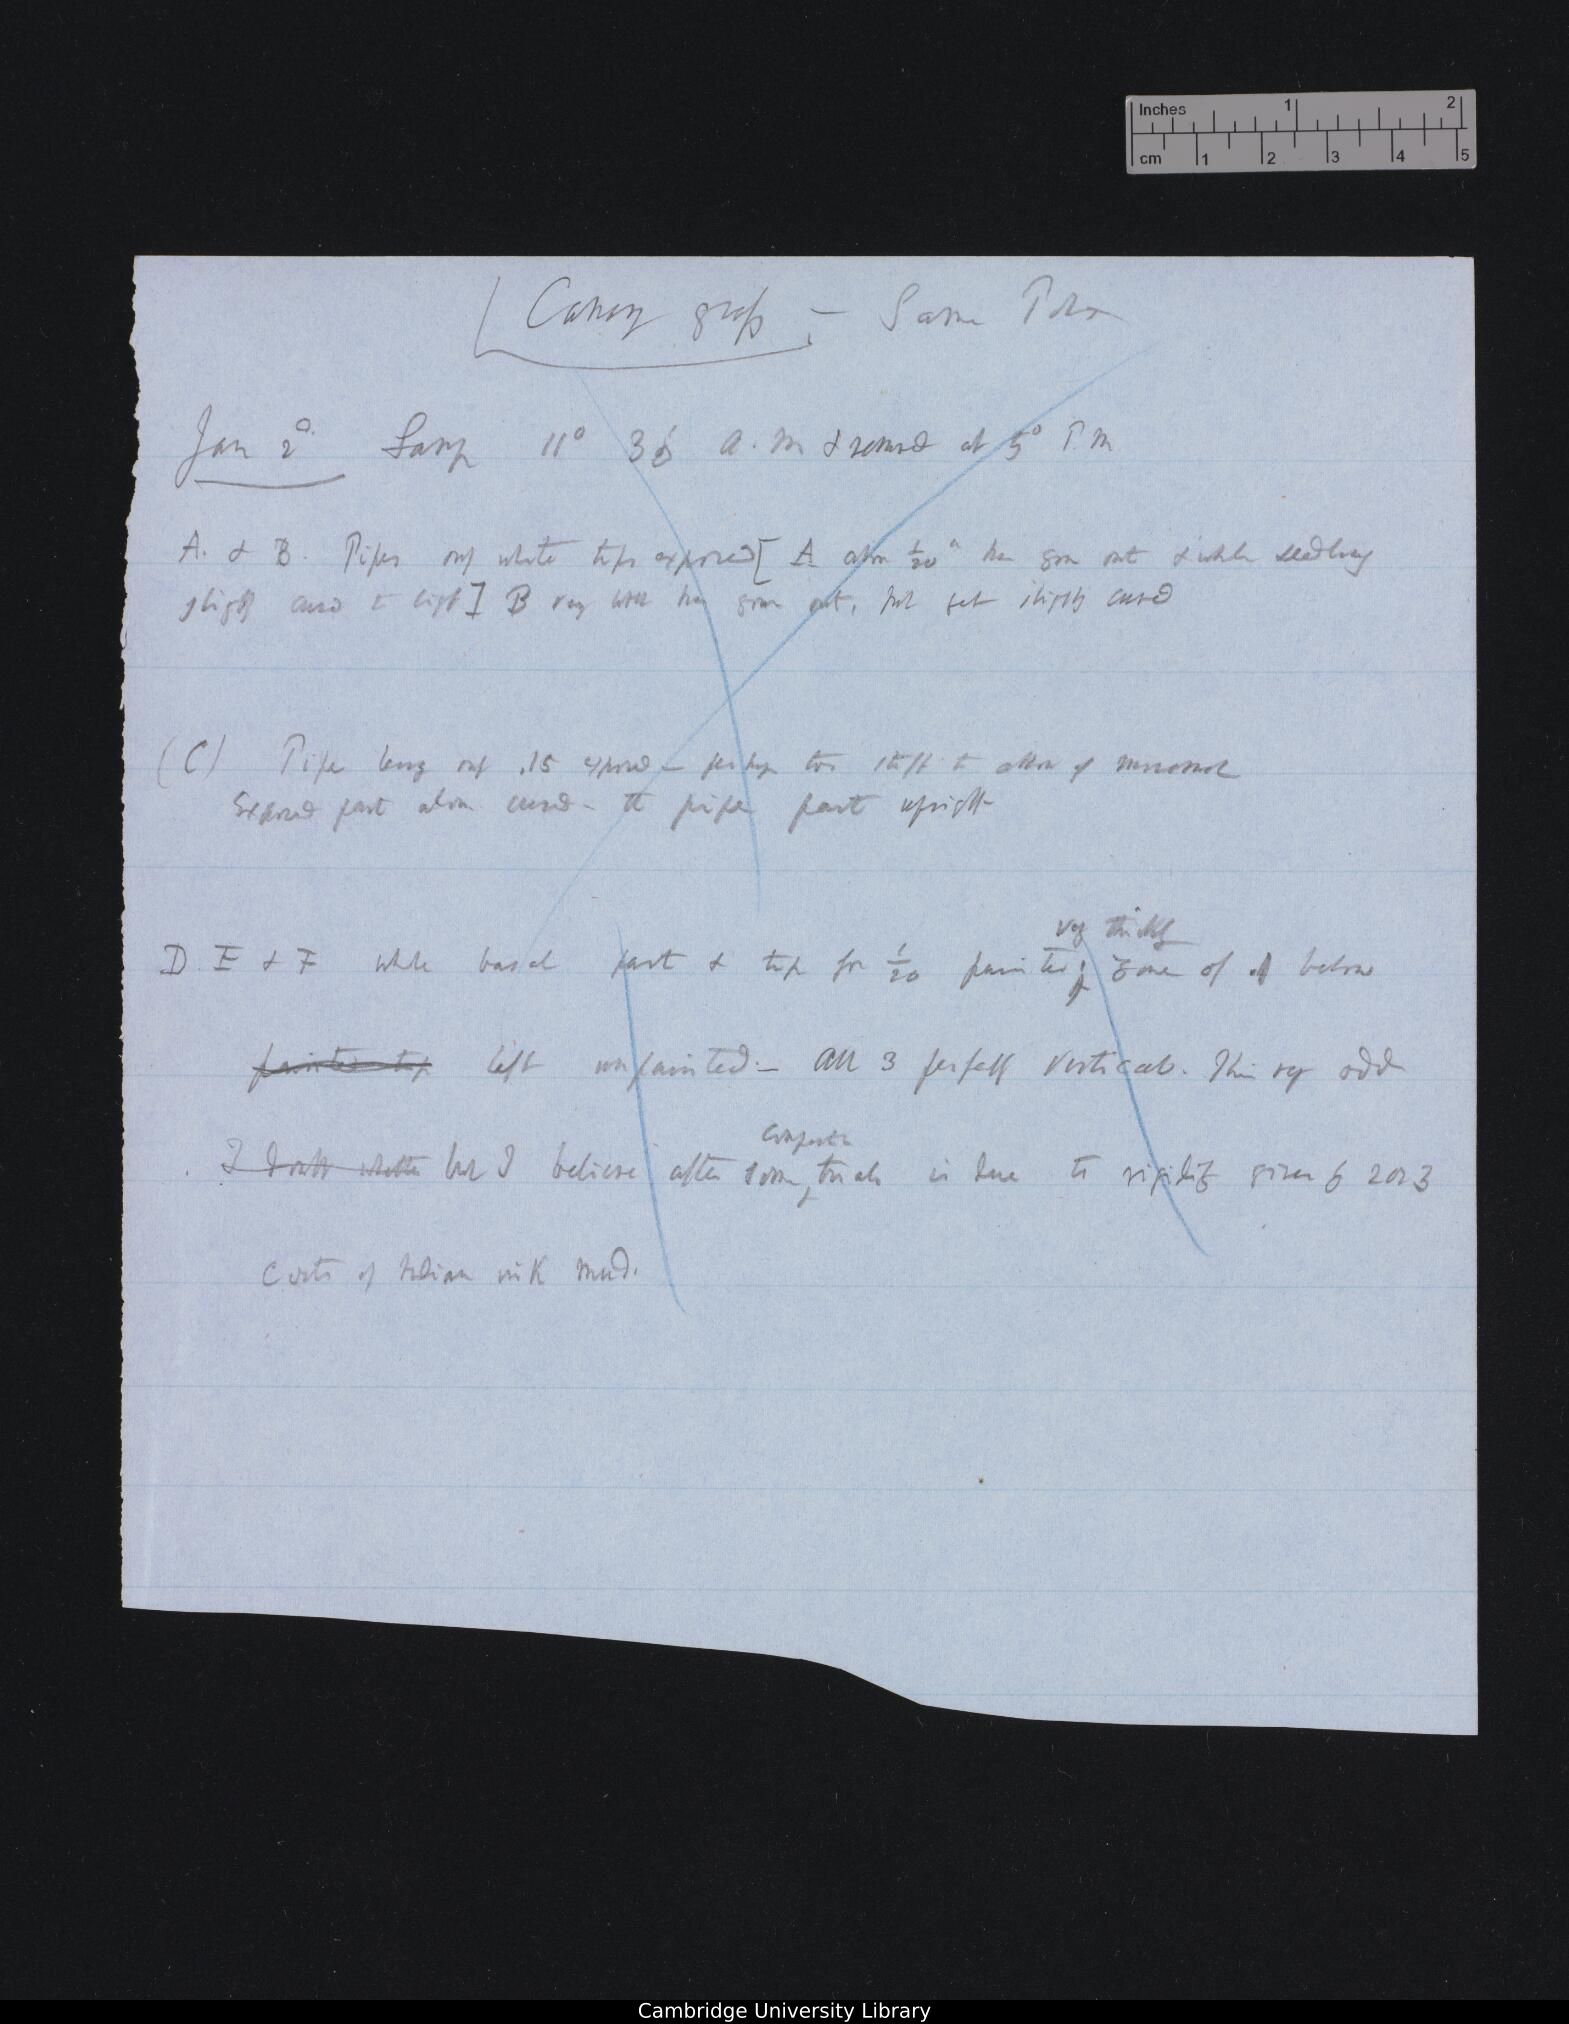 Inches 1 2
cm 1 2 3 4 5
Canary grass — Same Pots
Jan 2d. Lamp 11° 36' a.m & removed at 5° P.m
A. & B. Pipes only white tips exposed [A about 1/20" has gone out & whole seedling
slightly curved to light] B very little has gone out, but yet slightly curved
(C) Pipe long only .15 exposed — perhaps too stiff to allow of movement
Exposed part alone curved — the pipe part upright
very thickly
D E & F whole basal part & tip for 1/20 painted; zone of .1 below
painted tip left unpainted — All 3 perfectly vertical. This very odd
comparative
I doubt whether but I believe after some trials is due to rigidity given by 2 or 3
coats of Indian ink mud.
Cambridge University Library